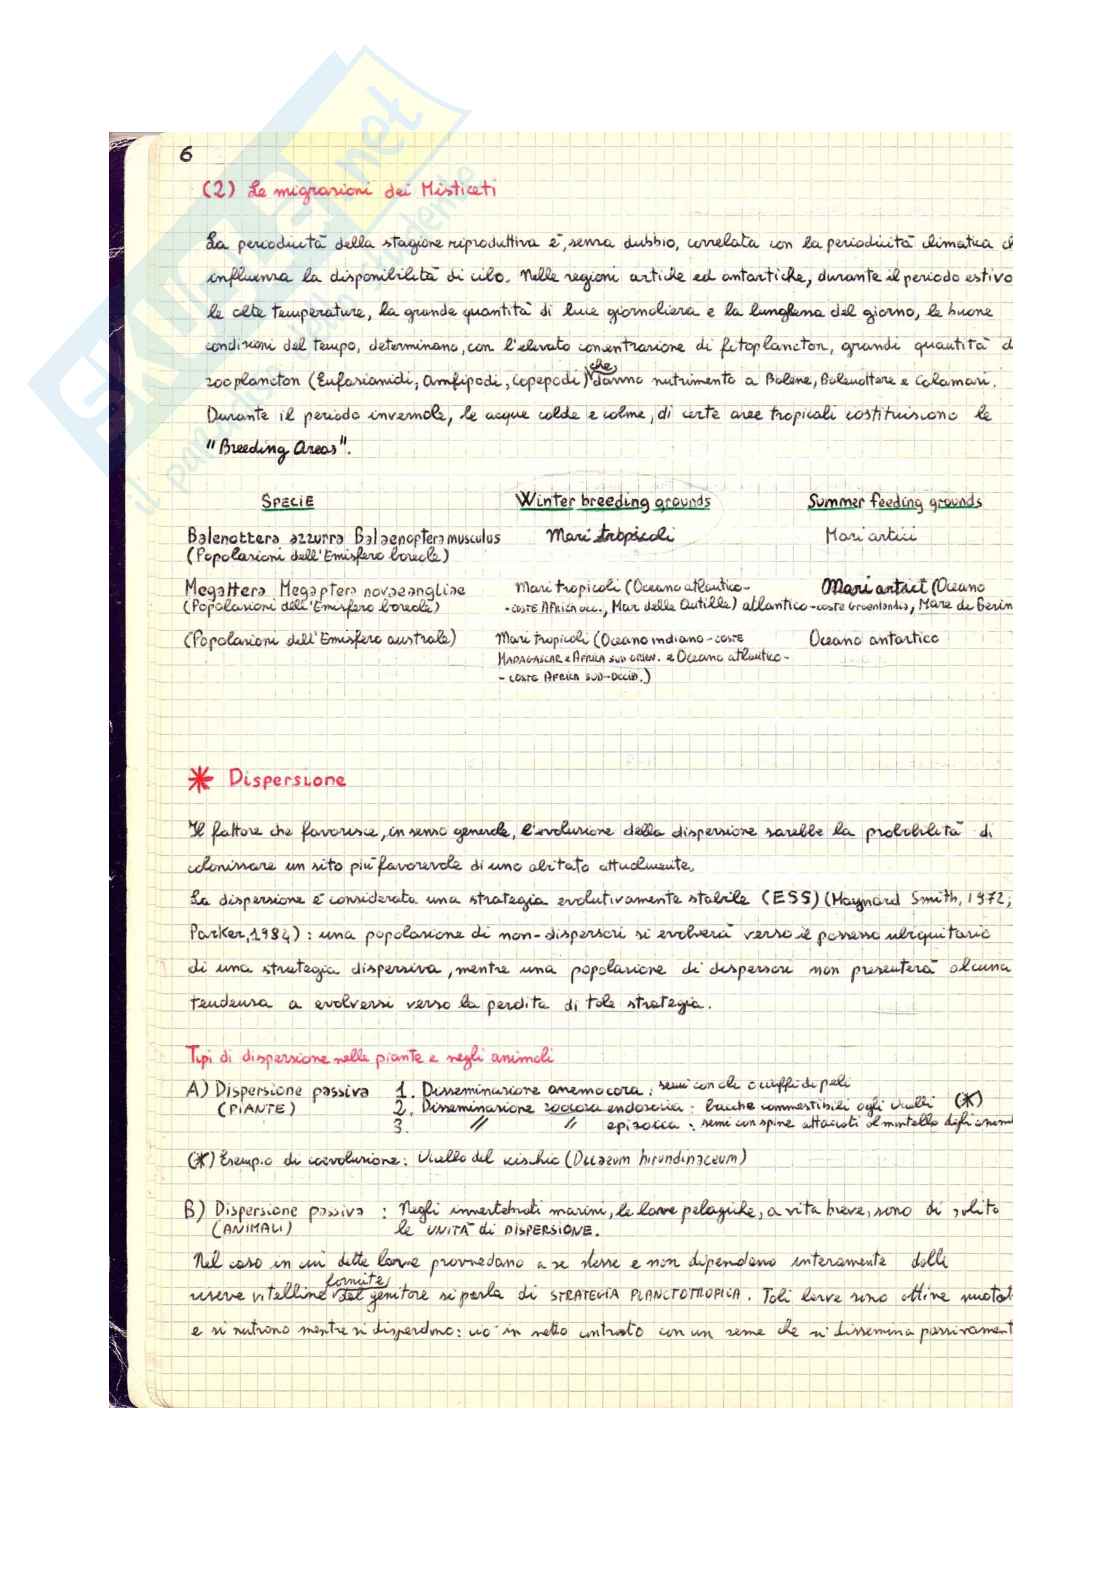 SKUOLA.net
il paradiso dello studente
6
(2) Le migrazioni dei Misticeti
La periodicità della stagione riproduttiva è, senza dubbio, correlata con la periodicità climatica ch
influenza la disponibilità di cibo. Nelle regioni artiche ed antartiche, durante il periodo estivo
le alte temperature, la grande quantità di luce giornaliera e la lunghezza del giorno, le buone
condizioni del tempo, determinano, con l'elevata concentrazione di fitoplancton, grandi quantità d
che
zooplancton (Eufasianidi, Amfipodi, Copepodi) danno nutrimento a Balene, Balenottere e Calamari.
Durante il periodo invernale, le acque calde e calme, di certe aree tropicali costituiscono le
"Breeding Areas".
SPECIE Winter breeding grounds Summer feeding grounds
Balenottera azzurra Balaenoptera musculus Mari tropicali Mari artici
(Popolazioni dell'Emisfero boreale)
Megattera Megaptera novaeangliae Mari tropicali (Oceano atlantico- Mari artici (Oceano
(Popolazioni dell'Emisfero boreale) -COSTE AFRICA OCC., Mar delle Antille) atlantico-COSTE Groenlandia, Mare di Berin
(Popolazioni dell'Emisfero australe) Mari tropicali (Oceano indiano-COSTE Oceano antartico
MADAGASCAR e AFRICA SUD ORIEN. e Oceano atlantico-
- COSTE AFRICA SUD-OCCID.)
* Dispersione
Il fattore che favorisce, in senso generale, l'evoluzione della dispersione sarebbe la probabilità di
colonizzare un sito più favorevole di uno abitato attualmente.
La dispersione è considerata una strategia evolutivamente stabile (ESS) (Maynard Smith, 1972;
Parker, 1984): una popolazione di non-dispersori si evolverà verso il possesso ubiquitario
di una strategia dispersiva, mentre una popolazione di dispersori non presenterà alcuna
tendenza a evolversi verso la perdita di tale strategia.
Tipi di dispersione nelle piante e negli animali
A) Dispersione passiva 1. Disseminazione anemocora: semi con ali o ciuffi di peli
(PIANTE) 2. Disseminazione zoocora endozoica: bacche commestibili agli uccelli (*)
3. " " epizoica: semi con spine attaccati al mantello degli animal
(*) Esempio di coevoluzione: Uccello del vischio (Dicaeum hirundinaceum)
B) Dispersione passiva : Negli invertebrati marini, le larve pelagiche, a vita breve, sono di solito
(ANIMALI) le UNITÀ di DISPERSIONE.
Nel caso in cui dette larve provvedano a se stesse e non dipendano interamente dalle
fornite
riserve vitelline dal genitore si parla di STRATEGIA PLANCTOTROPICA. Tali larve sono ottine nuotat
e si nutrono mentre si disperdono: ciò in netto contrasto con un seme che si dissemina passivament